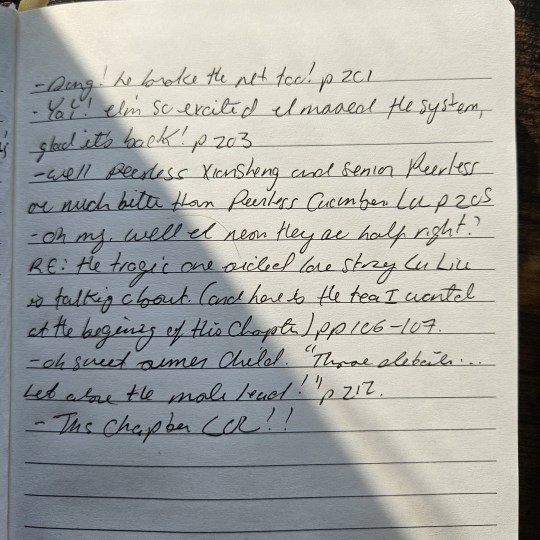 - Dang! he broke the pot too! p 201
- Yay! I'm so excited I missed the system,
glad it's back! p 203
- well Peerless Xiansheng and senior Peerless
are much better than Peerless Cucumber. Lu p 205
- oh my. well I mean they are half right?
RE: the tragic one sided love story Lu Liu
is talking about. (and here is the tea I wanted
at the beginning of this chapter) pp 106-107.
- oh sweet summer child. "Three details...
Let alone the male lead!" p 212.
- This chapter LOL!!